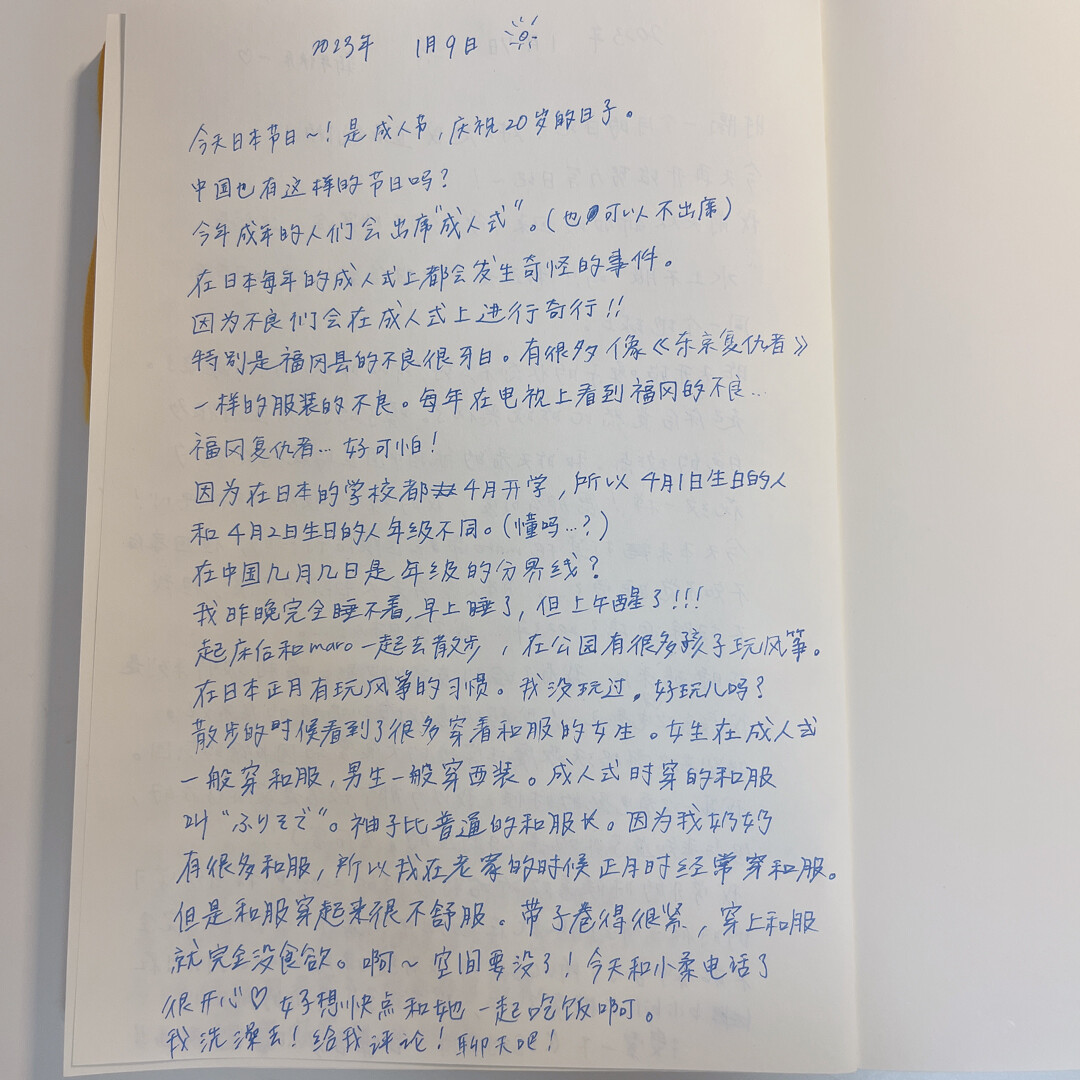 2023年 1月9日
今天日本节日~！是成人节，庆祝20岁的日子。
中国也有这样的节日吗？
今年成年的人们会出席"成人式"。(也可以人不出席)
在日本每年的成人式上都会发生奇怪的事件。
因为不良们会在成人式上进行奇行!!
特别是福冈县的不良很牙白。有很多像《东京复仇者》
一样的服装的不良。每年在电视上看到福冈的不良…
福冈复仇者…好可怕！
因为在日本的学校都4月开学，所以4月1日生日的人
和4月2日生日的人年级不同。(懂吗…?)
在中国几月几日是年级的分界线？
我昨晚完全睡不着,早上睡了，但上午醒了!!!
起床后和maro一起去散步，在公园有很多孩子玩风筝。
在日本正月有玩风筝的习惯。我没玩过。好玩儿吗？
散步的时候看到了很多穿着和服的女生。女生在成人式
一般穿和服，男生一般穿西装。成人式时穿的和服
叫"ふりそで"。袖子比普通的和服长。因为我奶奶
有很多和服，所以我在老家的时候正月时经常穿和服。
但是和服穿起来很不舒服。带子卷得很紧，穿上和服
就完全没食欲。啊~空间要没了！今天和小柔电话了
很开心♡好想快点和她一起吃饭啊。
我洗澡去！给我评论！聊天吧！